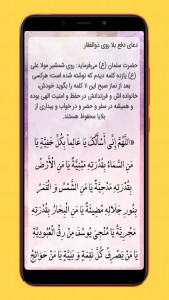 دعای دفع بلا روی ذوالفقار
حضرت سلمان (ع) می‌فرماید: روی شمشیر مولا علی
(ع) یازده کلمه دیدم که نوشته شده است؛ هرکسی
بعد از نماز صبح این ۱۱ کلمه را بگوید خودش،
خانواده اش و فرزندانش در حفظ و امنیت الهی بوده
و همیشه در سفر و حضر و در خواب و بیداری از
بلایا محفوظ هستند.
«اللَّهُمَّ إِنِّی أَسْأَلُکَ یَا عَالِماً بِکُلِّ خَفِیَّةٍ یَا
مَنِ السَّمَاءُ بِقُدْرَتِهِ مَبْنِیَّةٌ یَا مَنِ الْأَرْضُ
بِقُدْرَتِهِ مَدْحِیَّةٌ یَا مَنِ الشَّمْسُ وَ الْقَمَرُ
بِنُورِ جَلَالِهِ مُضِیئَةٌ یَا مَنِ الْبِحَارُ بِقُدْرَتِهِ
مَجْرِیَّةٌ یَا مُنْجِیَ یُوسُفَ مِنْ رِقِّ الْعُبُودِیَّةِ
یَا مَنْ یَصْرِفُ کُلَّ نَقِمَةٍ وَ بَلِیَّةٍ یَا مَنْ حَوَائِجُ